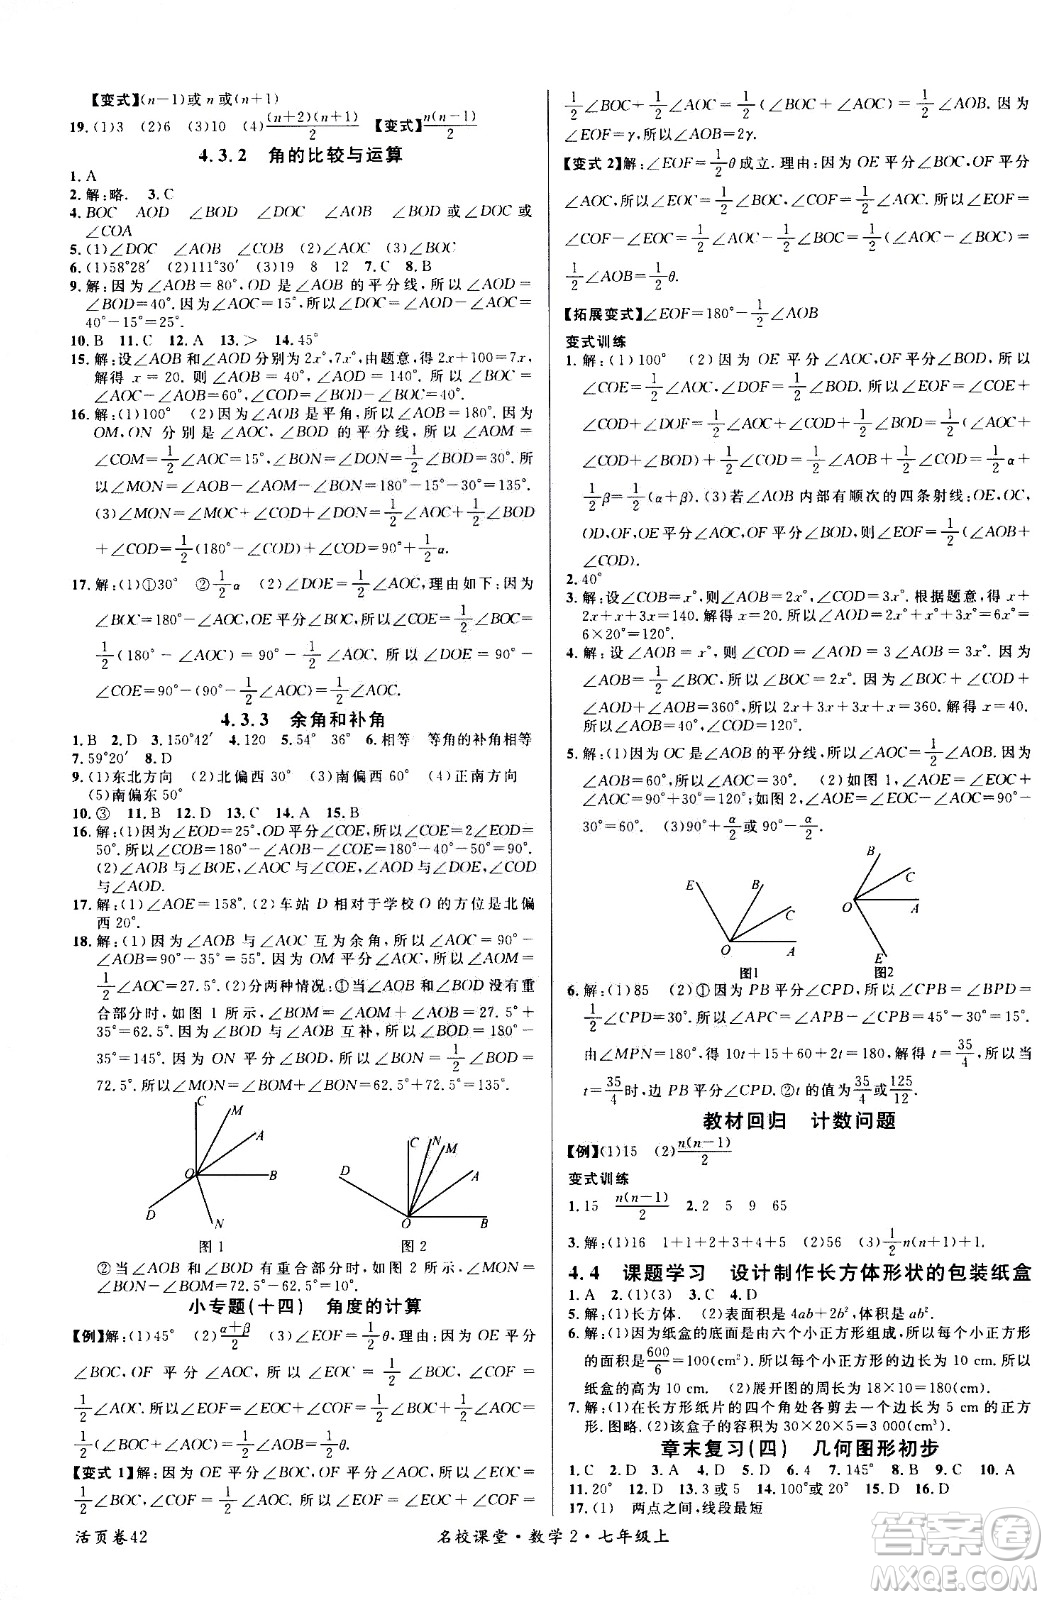 【变式】(n−1)或 n 或(n+1)
19.(1)3 (2)6 (3)10 (4)(n+2)(n+1)/2 【变式】n(n−1)/2
4.3.2 角的比较与运算
1.A
2.解:略. 3.C
4.BOC AOD ∠BOD ∠DOC ∠AOB ∠BOD 或∠DOC 或
∠COA
5.(1)∠DOC ∠AOB ∠COB (2)∠AOC ∠BOC
6.(1)58°28′ (2)111°30′ (3)19 8 12 7.C 8.B
9.解:因为∠AOB=80°,OD 是∠AOB 的平分线,所以∠AOD=
∠BOD=40°. 因为∠AOC=15°,所以∠DOC=∠AOD−∠AOC=
40°−15°=25°.
10.B 11.C 12.A 13.> 14.45°
15.解:设∠AOB 和∠AOD 分别为 2x°,7x°,由题意,得 2x+100=7x,
解得 x=20. 则∠AOB=40°,∠AOD=140°. 所以∠BOC=
∠AOC−∠AOB=60°,∠COD=∠AOD−∠AOC=40°.
16.解:(1)100° (2)因为∠AOB 是平角,所以∠AOB=180°. 因为
OM,ON 分别是∠AOC,∠BOD 的平分线,所以∠AOM=
∠COM=1/2∠AOC=15°,∠BON=∠DON=1/2∠BOD=30°. 所
以∠MON=∠AOB−∠AOM−∠BON=180°−15°−30°=135°.
(3)∠MON=∠MOC+∠COD+∠DON=1/2∠AOC+1/2∠BOD
+∠COD=1/2(180°−∠COD)+∠COD=90°+1/2α.
17.解:(1)①30° ②1/2α (2)∠DOE=1/2∠AOC,理由如下:因为
∠BOC=180°−∠AOC,OE 平分∠BOC,所以∠COE=1/2∠BOC=
1/2(180°−∠AOC)=90°−1/2∠AOC. 所以∠DOE=90°−
∠COE=90°−(90°−1/2∠AOC)=1/2∠AOC.
4.3.3 余角和补角
1.B 2.D 3.150°42′ 4.120 5.54° 36° 6.相等 等角的补角相等
7.59°20′ 8.D
9.(1)东北方向 (2)北偏西 30° (3)南偏西 60° (4)正南方向
(5)南偏东 50°
10.③ 11.B 12.D 13.C 14.A 15.B
16.解:(1)因为∠EOD=25°,OD平分∠COE,所以∠COE=2∠EOD=
50°. 所以∠COB=180°−∠AOE−∠COE=180°−90°−50°=40°.
(2)∠AOB 与∠BOE,∠AOB 与∠COE,∠AOD 与∠DOE,∠COD
与∠AOD.
17.解:(1)∠AOE=158°. (2)车站 D 相对于学校 O 的方位是北偏
西 20°.
18.解:(1)因为∠AOB 与∠AOC 互为余角,所以∠AOC=90°−
∠AOB=90°−35°=55°. (2)因为 OM 平分∠AOC,所以∠AOM=
1/2∠AOC=27.5°. (2)分两种情况:①当∠AOC 与∠BOD 没有重
合部分时,如图 1 所示,∠BOM=∠AOM+∠AOB=27.5°+
35°=62.5°. 因为∠BOD 与∠AOB 互补,所以∠BOD=180°−
35°=145°. 因为 ON 平分∠BOD,所以∠BON=1/2∠BOD=
72.5°. 所以∠MON=∠BOM+∠BON=62.5°+72.5°=135°.
C M A O B D N
图 1
D C N M A O B
图 2
②当∠AOC 与∠BOD 有重合部分时,如图 2 所示,∠MON=
∠BON−∠BOM=72.5°−62.5°=10°.
小专题(十四) 角度的计算
【例】解:(1)45° (2)α+β/2 (3)∠EOF=1/2∠AOB. 因为 OE 平分
∠BOC,OF 平分∠AOC,所以∠EOC=1/2∠BOC,∠COF=
1/2∠AOC. 所以∠EOF=∠EOC+∠COF=1/2∠BOC+
1/2∠AOC=1/2(∠BOC+∠AOC)=1/2∠AOB.
【变式 1】解:因为 OE 平分∠BOC,OF 平分∠AOC,所以∠EOC=
1/2∠BOC,∠COF=1/2∠AOC. 所以∠EOF=∠EOC+∠COF=
1/2∠BOC+1/2∠AOC=1/2(∠BOC+∠AOC)=1/2∠AOB. 因为
∠EOF=γ,所以∠AOB=2γ.
【变式 2】解:∠EOF=1/2θ成立. 理由:因为 OE 平分∠BOC,OF 平分
∠AOC,所以∠EOC=1/2∠BOC,∠COF=1/2∠AOC. 所以∠EOF=
∠COF−∠EOC=1/2∠AOC−1/2∠BOC=1/2(∠AOC−∠BOC)=
1/2∠AOB=1/2θ.
【拓展变式】∠EOF=180°−1/2∠AOB
变式训练
1.解:(1)100° (2)因为 OE 平分∠AOC,OF 平分∠BOD,所以
∠COE=1/2∠AOC,∠DOF=1/2∠BOD. 所以∠EOF=∠COE+
∠COD+∠DOF=1/2∠AOC+∠COD+1/2∠BOD=1/2(∠AOC+
∠COD+∠BOD)+1/2∠COD=1/2∠AOB+1/2∠COD=1/2α+
1/2β=1/2(α+β). (3)若∠AOB 内部有顺次的四条射线:OE,OC,
OD,OF,OE 平分∠AOC,OF 平分∠BOD,则∠EOF=1/2(∠AOB+
∠COD).
2.40°
3.解:设∠COB=x°,则∠AOB=2x°,∠COD=3x°. 根据题意,得 x+
2x+x+3x=140. 解得 x=20. 所以∠AOD=2x°+x°+3x°=6x°=
6×20°=120°.
4.解:设∠AOB=x°,则∠COD=∠AOD=3∠AOB=3x°. 因为
∠AOB=1/2∠BOC,所以∠BOC=2x°. 因为∠BOC+∠COD+
∠AOD+∠AOB=360°,所以 2x+3x+3x+x=360. 解得 x=40.
所以∠AOB=40°,∠COD=120°.
5.解:(1)因为 OC 是∠AOB 的平分线,所以∠AOC=1/2∠AOB. 因
为∠AOB=60°,所以∠AOC=30°. (2)如图 1,∠AOE=∠EOC+
∠AOC=90°+30°=120°;如图 2,∠AOE=∠EOC−∠AOC=90°−
30°=60°. (3)90°+α/2或 90°−α/2.
E B C O A
图1
B C O A E
图2
6.解:(1)85 (2)①因为 PB 平分∠CPD,所以∠CPB=∠BPD=
1/2∠CPD=30°. 所以∠APC=∠APB−∠CPB=45°−30°=15°.
由∠MPN=180°,得 10t+15+60+2t=180,解得 t=35/4,所以当
t=35/4时,边 PB 平分∠CPD. ②t 的值为35/4或125/12.
教材回归 计数问题
【例】(1)15 (2)n(n−1)/2
变式训练
1.15 n(n−1)/2 2.2 5 9 65
3.解:(1)16 1+1+2+3+4+5 (2)56 (3)1/2n(n+1)+1.
4.4 课题学习 设计制作长方体形状的包装纸盒
1.A 2.(1)(3) 3.C 4.D
5.解:(1)长方体. (2)表面积是 4ab+2b²,体积是 ab².
6.解:(1)因为纸盒的底面是由六个小正方形组成,所以小正方形
的面积是600/6=100(cm²). 所以每个小正方形的边长为 10 cm. 所以
纸盒的高为 10 cm. (2)展开图的周长为 18×10=180(cm).
7.解:(1)在长方形纸片的四个角处各剪去一个边长为 5 cm 的正方
形. 图略. (2)该盒子的容积为 30×20×5=3 000(cm³).
章末复习(四) 几何图形初步
1.C 2.D 3.A 4.A 5.D 6.4 7.145° 8.A 9.C 10.A
11.20° 12.D 13.3 或 5 14.D 15.A 16.C
17.(1) 两点之间,线段最短
活页卷42
名校课堂·数学2·七年级上
答案圈
MXQE.COM